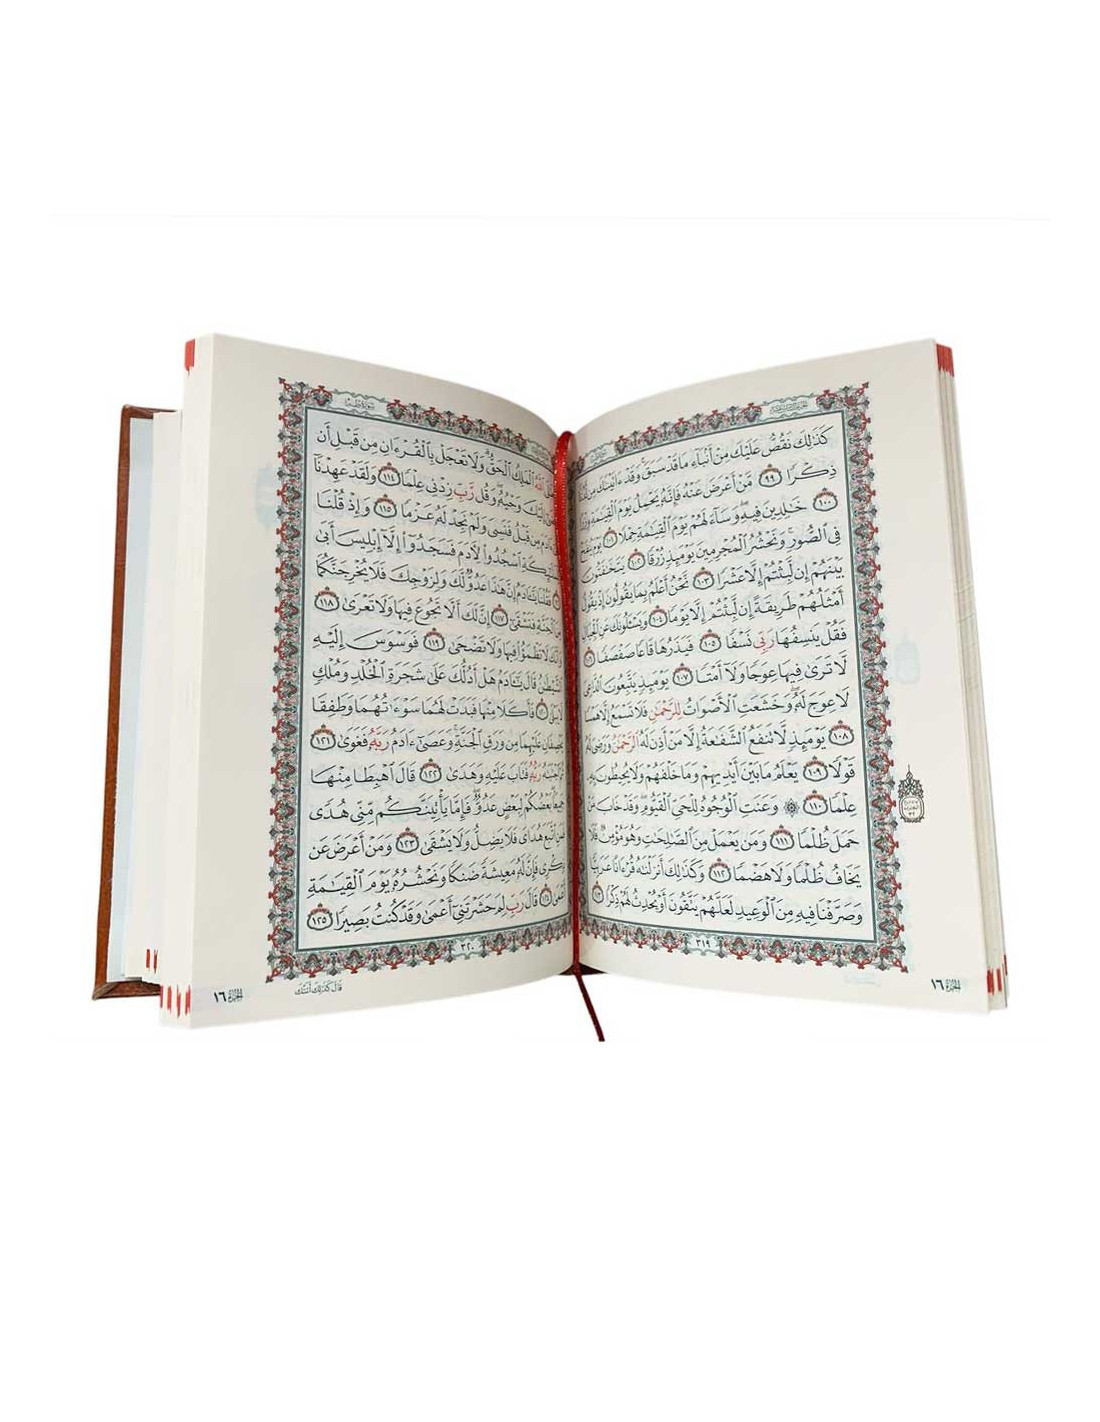 الجزء السادس عشر
كَذَٰلِكَ نَقُصُّ عَلَيْكَ مِنْ أَنۢبَآءِ مَا قَدْ سَبَقَ وَقَدْ ءَاتَيْنَٰكَ مِن لَّدُنَّا
ذِكْرًا ٩٩ مَّنْ أَعْرَضَ عَنْهُ فَإِنَّهُۥ يَحْمِلُ يَوْمَ ٱلْقِيَٰمَةِ وِزْرًا
١٠٠ خَٰلِدِينَ فِيهِ وَسَآءَ لَهُمْ يَوْمَ ٱلْقِيَٰمَةِ حِمْلًا ١٠١ يَوْمَ يُنفَخُ
فِى ٱلصُّورِ وَنَحْشُرُ ٱلْمُجْرِمِينَ يَوْمَئِذٍ زُرْقًا ١٠٢ يَتَخَٰفَتُونَ
بَيْنَهُمْ إِن لَّبِثْتُمْ إِلَّا عَشْرًا ١٠٣ نَّحْنُ أَعْلَمُ بِمَا يَقُولُونَ إِذْ يَقُولُ
أَمْثَلُهُمْ طَرِيقَةً إِن لَّبِثْتُمْ إِلَّا يَوْمًا ١٠٤ وَيَسْـَٔلُونَكَ عَنِ ٱلْجِبَالِ
فَقُلْ يَنسِفُهَا رَبِّى نَسْفًا ١٠٥ فَيَذَرُهَا قَاعًا صَفْصَفًا ١٠٦
لَّا تَرَىٰ فِيهَا عِوَجًا وَلَآ أَمْتًا ١٠٧ يَوْمَئِذٍ يَتَّبِعُونَ ٱلدَّاعِىَ
لَا عِوَجَ لَهُۥ وَخَشَعَتِ ٱلْأَصْوَاتُ لِلرَّحْمَٰنِ فَلَا تَسْمَعُ إِلَّا هَمْسًا
١٠٨ يَوْمَئِذٍ لَّا تَنفَعُ ٱلشَّفَٰعَةُ إِلَّا مَنْ أَذِنَ لَهُ ٱلرَّحْمَٰنُ وَرَضِىَ لَهُۥ
قَوْلًا ١٠٩ يَعْلَمُ مَا بَيْنَ أَيْدِيهِمْ وَمَا خَلْفَهُمْ وَلَا يُحِيطُونَ بِهِۦ
عِلْمًا ١١٠ ۞ وَعَنَتِ ٱلْوُجُوهُ لِلْحَىِّ ٱلْقَيُّومِ وَقَدْ خَابَ مَنْ
حَمَلَ ظُلْمًا ١١١ وَمَن يَعْمَلْ مِنَ ٱلصَّٰلِحَٰتِ وَهُوَ مُؤْمِنٌ فَلَا
يَخَافُ ظُلْمًا وَلَا هَضْمًا ١١٢ وَكَذَٰلِكَ أَنزَلْنَٰهُ قُرْءَانًا عَرَبِيًّا
وَصَرَّفْنَا فِيهِ مِنَ ٱلْوَعِيدِ لَعَلَّهُمْ يَتَّقُونَ أَوْ يُحْدِثُ لَهُمْ ذِكْرًا ١١٣
٣١٩
الجزء ١٦
سورة طه
ٱللَّهُ ٱلْمَلِكُ ٱلْحَقُّ وَلَا تَعْجَلْ بِٱلْقُرْءَانِ مِن قَبْلِ أَن
إِلَيْكَ وَحْيُهُۥ وَقُل رَّبِّ زِدْنِى عِلْمًا ١١٤ وَلَقَدْ عَهِدْنَآ
ءَادَمَ مِن قَبْلُ فَنَسِىَ وَلَمْ نَجِدْ لَهُۥ عَزْمًا ١١٥ وَإِذْ قُلْنَا
ٱسْجُدُوا۟ لِءَادَمَ فَسَجَدُوٓا۟ إِلَّآ إِبْلِيسَ أَبَىٰ
فَقُلْنَا يَٰٓـَٔادَمُ إِنَّ هَٰذَا عَدُوٌّ لَّكَ وَلِزَوْجِكَ فَلَا يُخْرِجَنَّكُمَا
مِنَ ٱلْجَنَّةِ فَتَشْقَىٰٓ ١١٧ إِنَّ لَكَ أَلَّا تَجُوعَ فِيهَا وَلَا تَعْرَىٰ ١١٨
وَأَنَّكَ لَا تَظْمَؤُا۟ فِيهَا وَلَا تَضْحَىٰ ١١٩ فَوَسْوَسَ إِلَيْهِ
ٱلشَّيْطَٰنُ قَالَ يَٰٓـَٔادَمُ هَلْ أَدُلُّكَ عَلَىٰ شَجَرَةِ ٱلْخُلْدِ وَمُلْكٍ
فَأَكَلَا مِنْهَا فَبَدَتْ لَهُمَا سَوْءَٰتُهُمَا وَطَفِقَا
يَخْصِفَانِ عَلَيْهِمَا مِن وَرَقِ ٱلْجَنَّةِ وَعَصَىٰٓ ءَادَمُ رَبَّهُۥ فَغَوَىٰ ١٢١
ثُمَّ ٱجْتَبَٰهُ رَبُّهُۥ فَتَابَ عَلَيْهِ وَهَدَىٰ ١٢٢ قَالَ ٱهْبِطَا مِنْهَا
جَمِيعًۢا بَعْضُكُمْ لِبَعْضٍ عَدُوٌّ فَإِمَّا يَأْتِيَنَّكُم مِّنِّى هُدًى
فَمَنِ ٱتَّبَعَ هُدَاىَ فَلَا يَضِلُّ وَلَا يَشْقَىٰ ١٢٣ وَمَنْ أَعْرَضَ عَن
ذِكْرِى فَإِنَّ لَهُۥ مَعِيشَةً ضَنكًا وَنَحْشُرُهُۥ يَوْمَ ٱلْقِيَٰمَةِ
أَعْمَىٰ قَالَ رَبِّ لِمَ حَشَرْتَنِىٓ أَعْمَىٰ وَقَدْ كُنتُ بَصِيرًا ١٢٥
٣٢٠
قال كذلك أتتك
الجزء ١٦